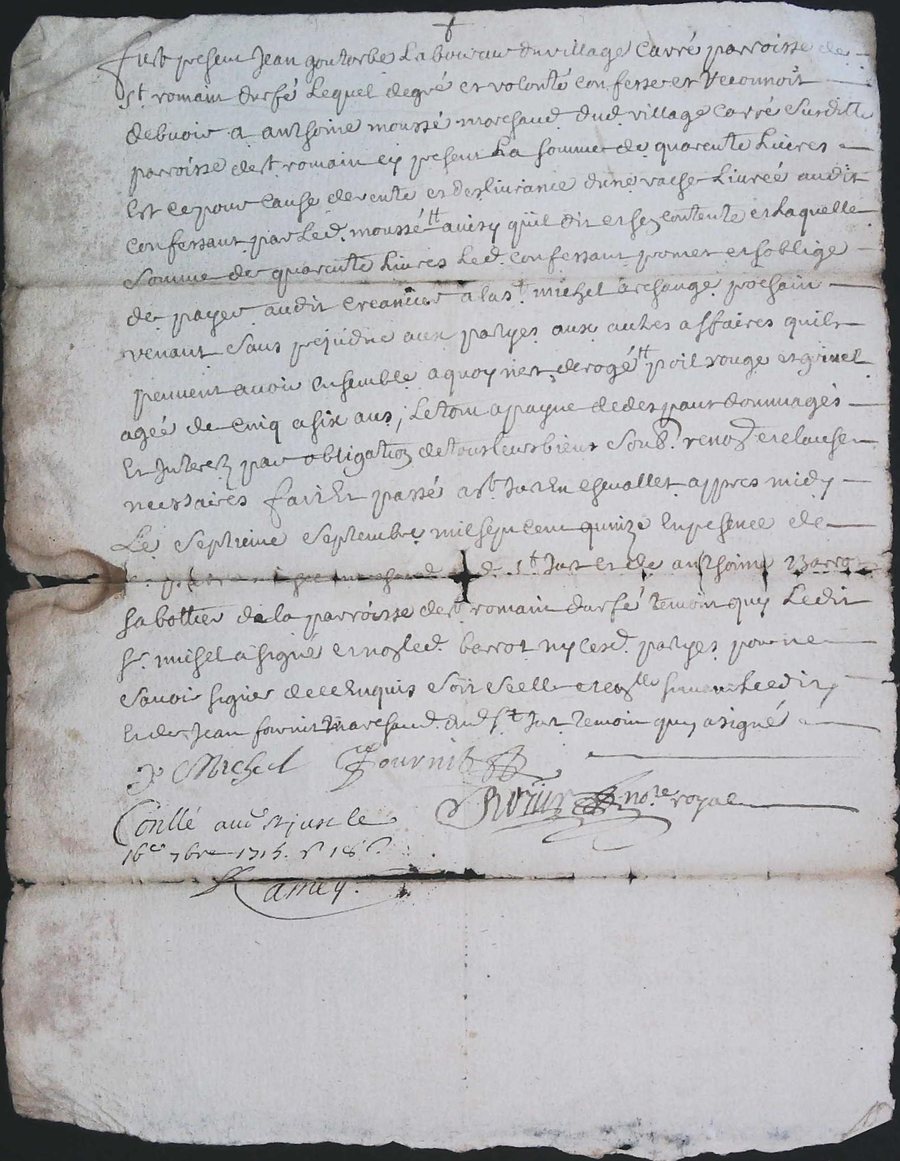 Fust present Jean gouttorbe Laboureur du village Carré parroisse de
St. romain durfé Lequel de gré et volonté confesse et reconnoit
debuoir a anthoine moussé marchand dud. village Carré Susditte
parroisse de st. romain cy present La somme de quarente Livres
Est ce pour Cause de vente et deslivrance d'une vache Livrée audit
Confessant par Led. moussé tt qu'il dit et Contente et Laquelle
Somme de quarente Livres Led. Confessant promet et soblige
de payer audit Creancier a la st. michel archange prochain
venant Sans prejudice aux partyes aux autres affaires quils
peuvent avoir Ensemble a quoy n'est derogé tt poil rouge et
agée de Cinq a six ans ; Le tout a payne de des pans dommages
Et Interetz par obligation de tous leurs biens Soub. renoz. et clauses
necessaires fait Et passé a st. Just En chevallet appres midy
Le Septieme Septembre mil sept cent quinze En presence de
st. Just et de anthoine Barro
sabottier de la parroisse de st. romain durfé temoin quy Ledit
sr. michel a signé et non led. barrot ny lesd. partyes pour ne
Scavoir signer de ce Enquis Soit Scellé Ledit
Et de Jean fournit marchand dud. st. Just temoin quy a signé
Michel Fournit
no.re royal
Conllé aud. st just le
16e 7bre 1715.
Ramey.